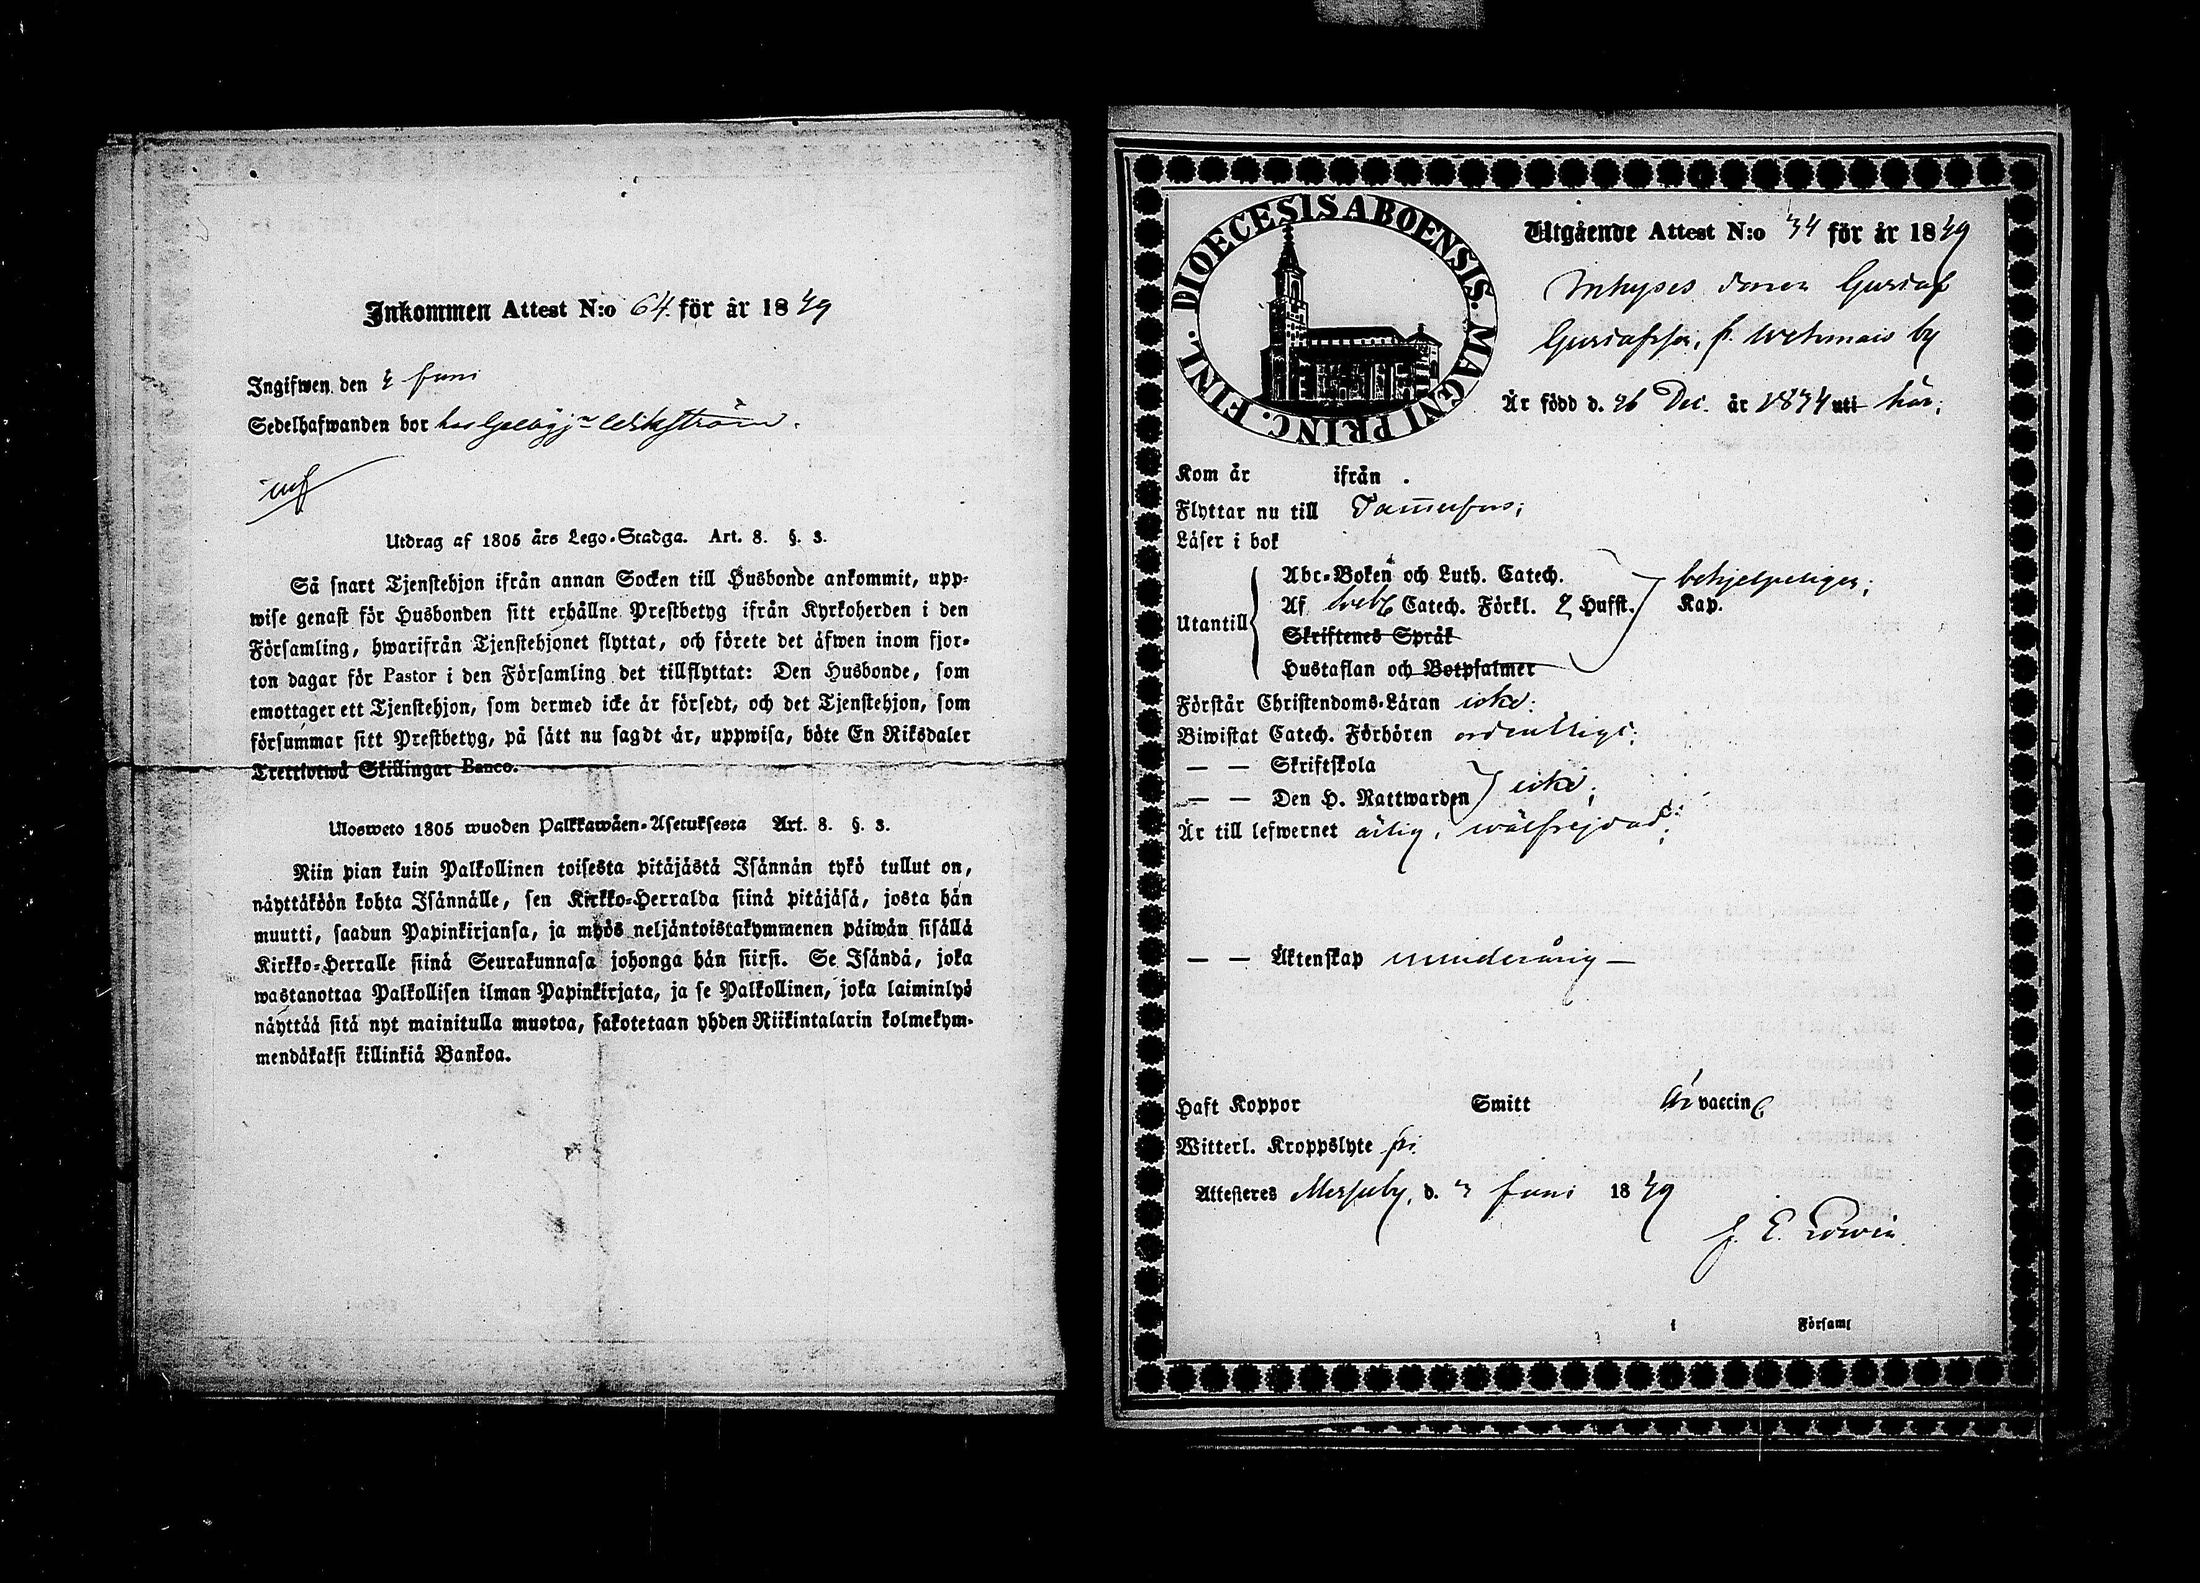 Inkommen Attest N:o 64. för år 1849
Ingifwen den 4 Juni
Sedelhafwanden bor hos
Utdrag af 1805 års Lego-Stadga. Art. 8. §. 3.
Så snart Tjenstehjon ifrån annan Socken till Husbonde ankommit, upp-
wise genast för Husbonden sitt erhållne Prestbetyg ifrån Kyrkoherden i den
Församling, hwarifrån Tjenstehjonet flyttat, och förete det äfwen inom fjor-
ton dagar för Pastor i den Församling det tillflyttat: Den Husbonde, som
emottager ett Tjenstehjon, som dermed icke är försedt, och det Tjenstehjon, som
försummar sitt Prestbetyg, på sätt nu sagdt är, uppwisa, böte En Riksdaler
Trettiotwå Skillingar Banco.
Ulosweto 1805 wuoden Palkkawäen-Asetuksesta Art. 8. §. 3.
Niin pian kuin Palkollinen toisesta pitäjästä Isännän tykö tullut on,
näyttäköön kohta Isännälle, sen Kirkko-Herralda siinä pitäjäsä, josta hän
muutti, saadun Papinkirjansa, ja myös neljäntoistakymmenen päiwän sisällä
Kirkko-Herralle siinä Seurakunnasa johonga hän siirsi. Se Isändä, joka
wastanottaa Palkollisen ilman Papinkirjata, ja se Palkollinen, joka laiminlyö
näyttää sitä nyt mainitulla muotoa, sakotetaan yhden Riikintalarin kolmekym-
mendäkaksi killinkiä Bankoa.
DIOECESIS ABOENSIS. MAGNI PRINC. FINL.
Utgående Attest N:o 34 för år 1849
Inhyses sonen Gustaf
Gustafsson, fr. by
Är född d. 26 Dec. år 1834 uti här;
Kom år ifrån .
Flyttar nu till Tammerfors;
Läser i bok
Utantill
Abc-Boken och Luth. Catech. behjelpeligen;
Af Catech. Förkl. 2 Hufst. Kap.
Skriftenes Språk
Hustaflan och Botpsalmer
Förstår Christendoms-Läran icke;
Biwistat Catech. Förhören ordentligt;
— — Skriftskola
— — Den H. Nattwarden icke;
Är till lefwernet ärlig, wälfrejdad;
— — Äktenskap minderårig —
Haft Koppor Smitt Är vaccin
Witterl. Kroppslyte fri
Attesteres Messuby, d. 3 Juni 1849
J. E.
i Församl